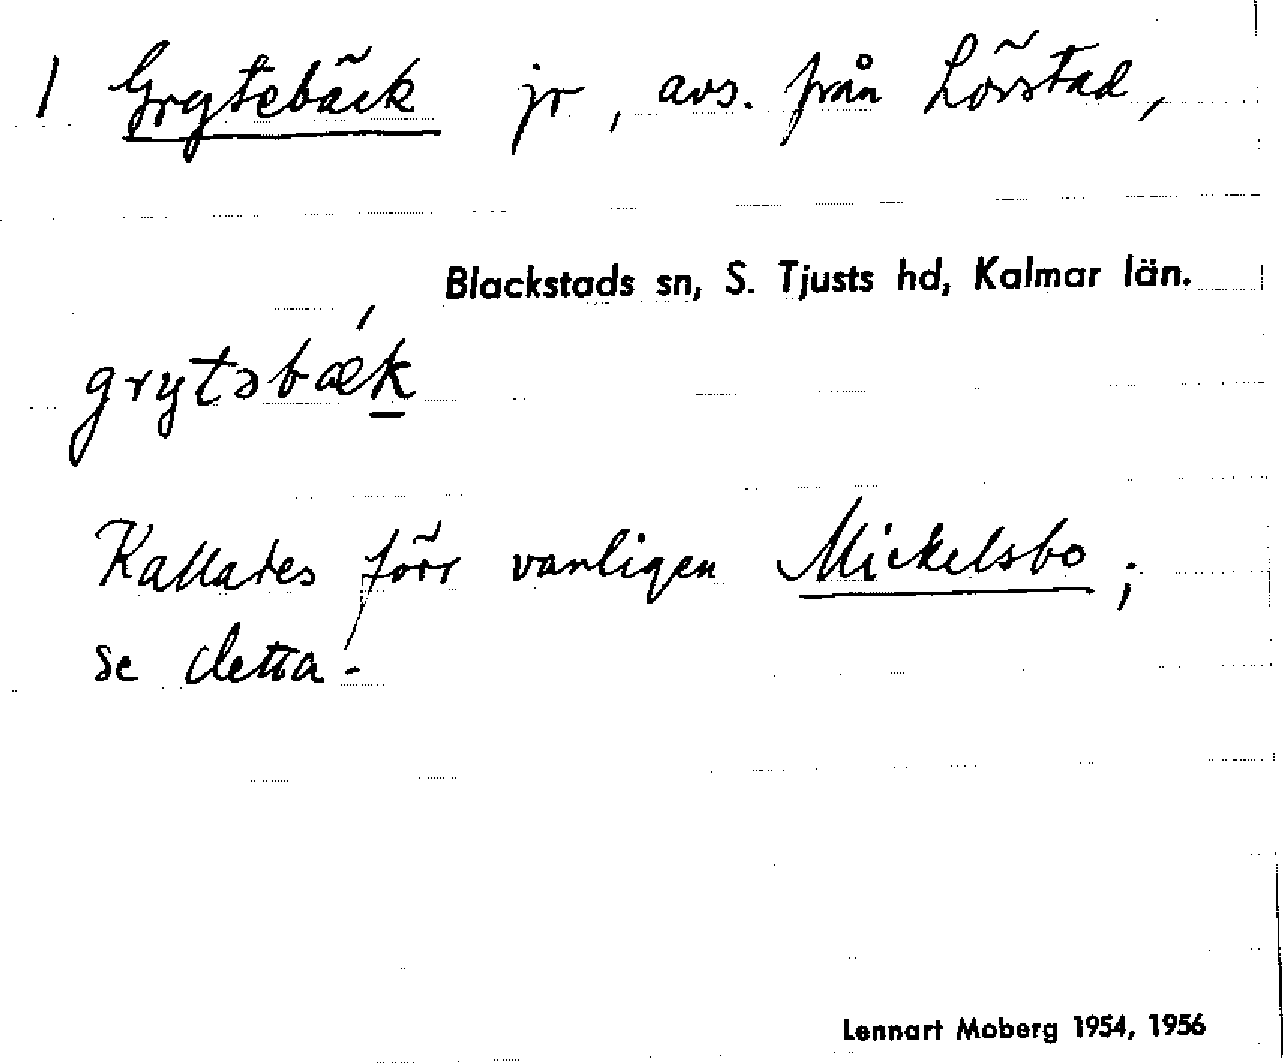 1 Grytebäck jr, avs. från Lövstad,
Blackstads sn, S. Tjusts hd, Kalmar län.
grytəbæ´k
Kallades förr vanligen Mickelsbo;
se detta.
Lennart Moberg 1954, 1956